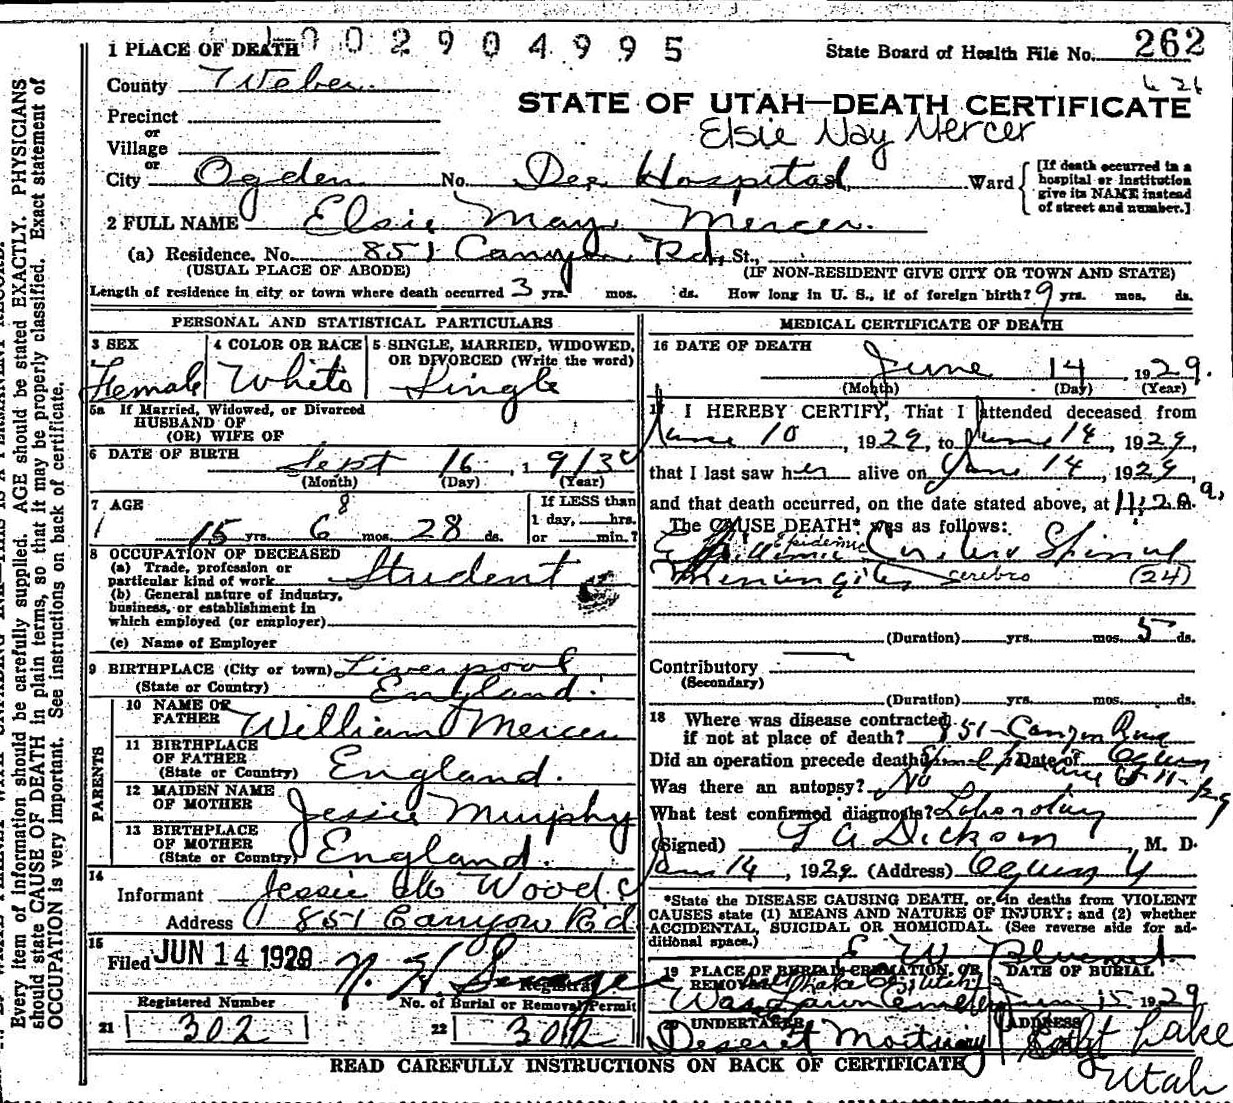 1 PLACE OF DEATH 1002904995 State Board of Health File No. 262
County Weber
STATE OF UTAH—DEATH CERTIFICATE
Precinct
Elsie May Mercer
or
Village
or
City Ogden No. Dee Hospital Ward [If death occurred in a hospital or institution give its NAME instead of street and number.]
2 FULL NAME Elsie May Mercer.
(a) Residence. No. 851 Canyon Rd. St.,
(USUAL PLACE OF ABODE) (IF NON-RESIDENT GIVE CITY OR TOWN AND STATE)
Length of residence in city or town where death occurred 3 yrs. mos. ds. How long in U. S., if of foreign birth? 9 yrs. mos. ds.
PERSONAL AND STATISTICAL PARTICULARS
3 SEX 4 COLOR OR RACE 5 SINGLE, MARRIED, WIDOWED,
OR DIVORCED (Write the word)
Female White Single
5a If Married, Widowed, or Divorced
HUSBAND OF
(OR) WIFE OF
6 DATE OF BIRTH Sept 16, 1913
(Month) (Day) (Year)
7 AGE 8 If LESS than
15 yrs. 6 mos. 28 ds. 1 day, hrs.
or min.?
8 OCCUPATION OF DECEASED
(a) Trade, profession or
particular kind of work Student
(b) General nature of industry,
business, or establishment in
which employed (or employer)
(c) Name of Employer
9 BIRTHPLACE (City or town) Liverpool
(State or Country) England.
PARENTS
10 NAME OF
FATHER William Mercer
11 BIRTHPLACE
OF FATHER
(State or Country) England.
12 MAIDEN NAME
OF MOTHER Jessie Murphy
13 BIRTHPLACE
OF MOTHER
(State or Country) England.
14
Informant Jessie Wood
Address 851 Canyon Rd
15
Filed JUN 14 1929
Registrar
Registered Number No. of Burial or Removal Permit
21 302 22 302
MEDICAL CERTIFICATE OF DEATH
16 DATE OF DEATH
June 14, 1929.
(Month) (Day) (Year)
17 I HEREBY CERTIFY, That I attended deceased from
June 10, 1929, to June 14, 1929,
that I last saw her alive on June 14, 1929
and that death occurred, on the date stated above, at
The CAUSE DEATH* was as follows:
Epidemic Cerebro Spinal
Meningitis cerebro (24)
(Duration) yrs. mos. 5 ds.
Contributory
(Secondary)
(Duration) yrs. mos. ds.
18 Where was disease contracted
if not at place of death? 851 - Canyon Road
Did an operation precede death? Date of
Was there an autopsy? No
What test confirmed diagnosis? Laboratory
(Signed) L A Dickson, M. D.
14, 1929 (Address) Ogden U
*State the DISEASE CAUSING DEATH, or, in deaths from VIOLENT
CAUSES state (1) MEANS AND NATURE OF INJURY; and (2) whether
ACCIDENTAL, SUICIDAL OR HOMICIDAL. (See reverse side for additional space.)
19 PLACE OF BURIAL, CREMATION, OR REMOVAL DATE OF BURIAL
Salt Lake City Utah
Wasatch Lawn Cemetery June 15, 1929
20 UNDERTAKER ADDRESS
Deseret Mortuary Salt Lake
Utah
READ CAREFULLY INSTRUCTIONS ON BACK OF CERTIFICATE
Every item of information should be carefully supplied. AGE should be stated EXACTLY. PHYSICIANS
should state CAUSE OF DEATH in plain terms, so that it may be properly classified. Exact statement of
OCCUPATION is very important. See instructions on back of certificate.